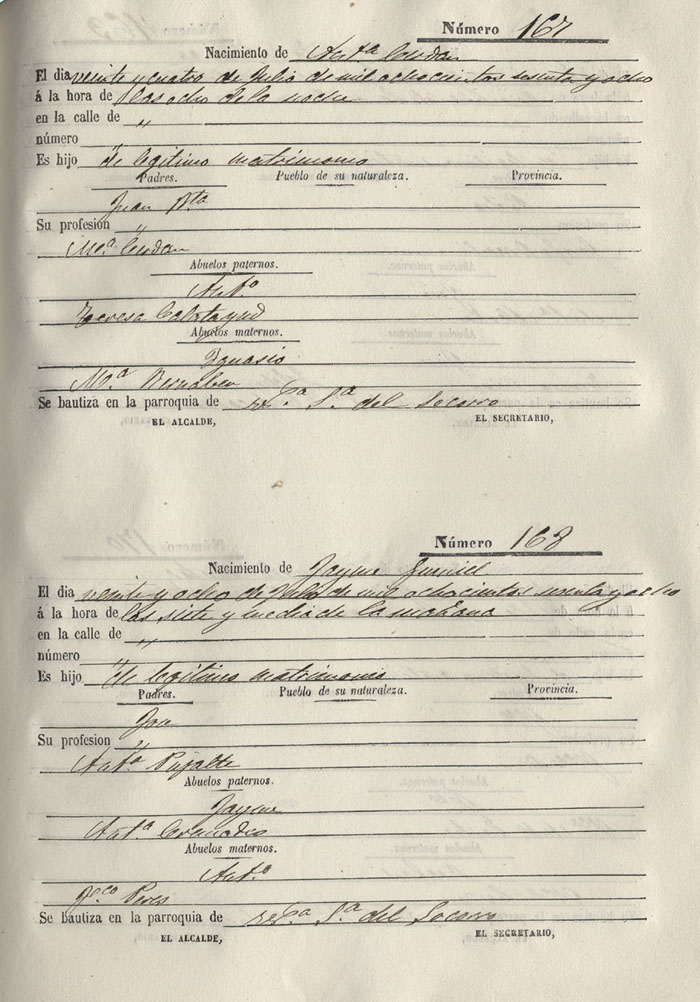 Número 167
Nacimiento de Ant.ª Cerdan
El dia veinte y cuatro de Julio de mil ochocientos sesenta y ocho
á la hora de las ocho de la noche
en la calle de "
número
Es hijo de legitimo matrimonio
Padres. Pueblo de su naturaleza. Provincia.
Juan Bta
Su profesion "
M.ª Cerdan
Abuelos paternos.
Ant.º
Teresa
Abuelos maternos.
Ygnasio
M.ª Bernabeu
Se bautiza en la parroquia de S.ª del Socorro
EL ALCALDE, EL SECRETARIO,
Número 168
Nacimiento de Jayme
El dia veinte y ocho de Julio de mil ochocientos sesenta y ocho
á la hora de las siete y media de la mañana
en la calle de "
número
Es hijo de legitimo matrimonio
Padres. Pueblo de su naturaleza. Provincia.
Su profesion "
Ant.ª Pujalte
Abuelos paternos.
Jayme
Ant.ª
Abuelos maternos.
Ant.º
Peres
Se bautiza en la parroquia de S.ª del Socorro
EL ALCALDE, EL SECRETARIO,